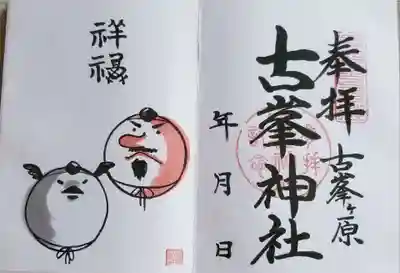 奉拝
古峯ヶ原
古峯神社
年月日
祥福